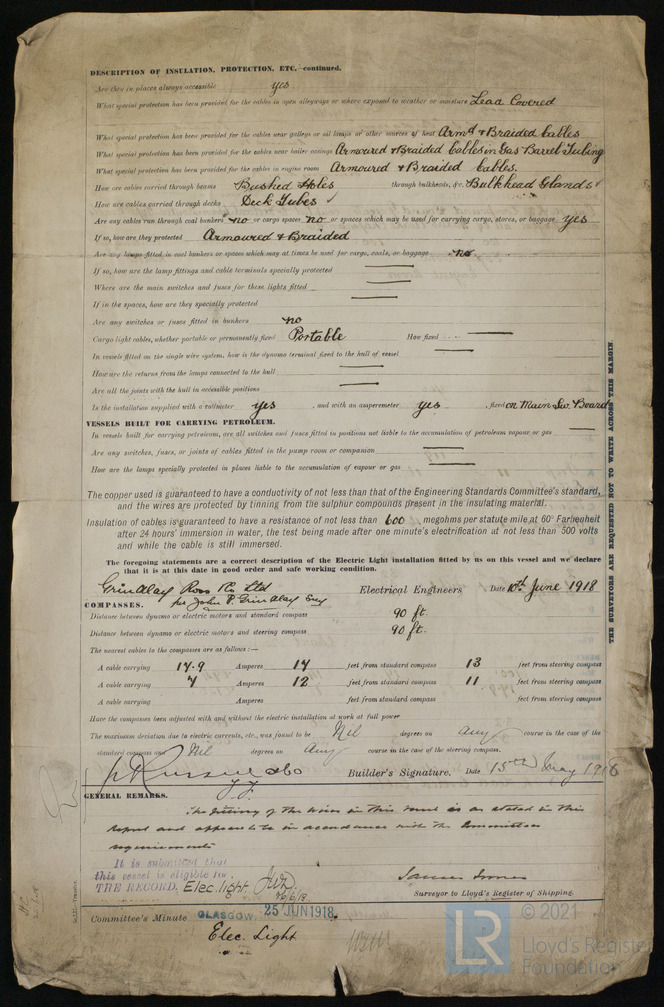 DESCRIPTION OF INSULATION, PROTECTION, ETC.—continued.
Are they in places always accessible yes
What special protection has been provided for the cables in open alleyways or where exposed to weather or moisture Lead Covered
What special protection has been provided for the cables near galleys or oil lamps or other sources of heat Armd & Braided Cables
What special protection has been provided for the cables near boiler casings Armoured & Braided Cables in Gas Barrel Tubing
What special protection has been provided for the cables in engine room Armoured & Braided Cables.
How are cables carried through beams Bushed Holes through bulkheads, &c. Bulkhead Glands ✓
How are cables carried through decks Deck Tubes ✓
Are any cables run through coal bunkers no or cargo spaces no or spaces which may be used for carrying cargo, stores, or baggage yes
If so, how are they protected Armoured & Braided
Are any lamps fitted in coal bunkers or spaces which may at times be used for cargo, coals, or baggage no
If so, how are the lamp fittings and cable terminals specially protected
Where are the main switches and fuses for these lights fitted
If in the spaces, how are they specially protected
Are any switches or fuses fitted in bunkers no
Cargo light cables, whether portable or permanently fixed Portable How fixed
In vessels fitted on the single wire system, how is the dynamo terminal fixed to the hull of vessel
How are the returns from the lamps connected to the hull
Are all the joints with the hull in accessible positions
Is the installation supplied with a voltmeter yes, and with an amperemeter yes, fixed on Main Sw. Board
VESSELS BUILT FOR CARRYING PETROLEUM.
In vessels built for carrying petroleum, are all switches and fuses fitted in positions not liable to the accumulation of petroleum vapour or gas
Are any switches, fuses, or joints of cables fitted in the pump room or companion
How are the lamps specially protected in places liable to the accumulation of vapour or gas
The copper used is guaranteed to have a conductivity of not less than that of the Engineering Standards Committee's standard,
and the wires are protected by tinning from the sulphur compounds present in the insulating material.
Insulation of cables is guaranteed to have a resistance of not less than 600 megohms per statute mile at 60° Farhenheit
after 24 hours' immersion in water, the test being made after one minute's electrification at not less than 500 volts
and while the cable is still immersed.
The foregoing statements are a correct description of the Electric Light installation fitted by us on this vessel and we declare
that it is at this date in good order and safe working condition.
Grindlay Ross & Co Ltd Electrical Engineers Date 10th June 1918
per John P. Grindlay
COMPASSES.
Distance between dynamo or electric motors and standard compass 90 ft.
Distance between dynamo or electric motors and steering compass 90 ft.
The nearest cables to the compasses are as follows:—
A cable carrying 17.9 Amperes 14 feet from standard compass 13 feet from steering compass
A cable carrying 7 Amperes 12 feet from standard compass 11 feet from steering compass
A cable carrying Amperes feet from standard compass feet from steering compass
Have the compasses been adjusted with and without the electric installation at work at full power
The maximum deviation due to electric currents, etc., was found to be Nil degrees on Any course in the case of the
standard compass and Nil degrees on Any course in the case of the steering compass.
Russell & Co Builder's Signature. Date 15th May 1918
GENERAL REMARKS.
The fitting of the wires in this vessel is as stated in this
report and appears to be in accordance with the Committees
requirements
It is submitted that
this vessel is eligible for
THE RECORD. Elec. light
26/6/18
Surveyor to Lloyd's Register of Shipping.
Committee's Minute GLASGOW. 25 JUN 1918.
Elec. Light
THE SURVEYORS ARE REQUESTED NOT TO WRITE ACROSS THIS MARGIN.
© 2021
LR Lloyd's Register
Foundation